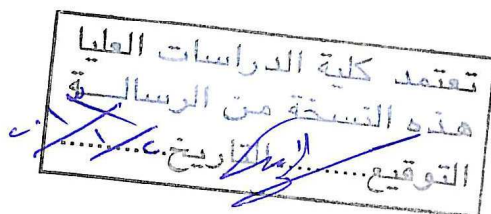 تعتمد كلية الدراسات العليا
هذه النسخة من الرسالة
التوقيع..........التاريخ..........